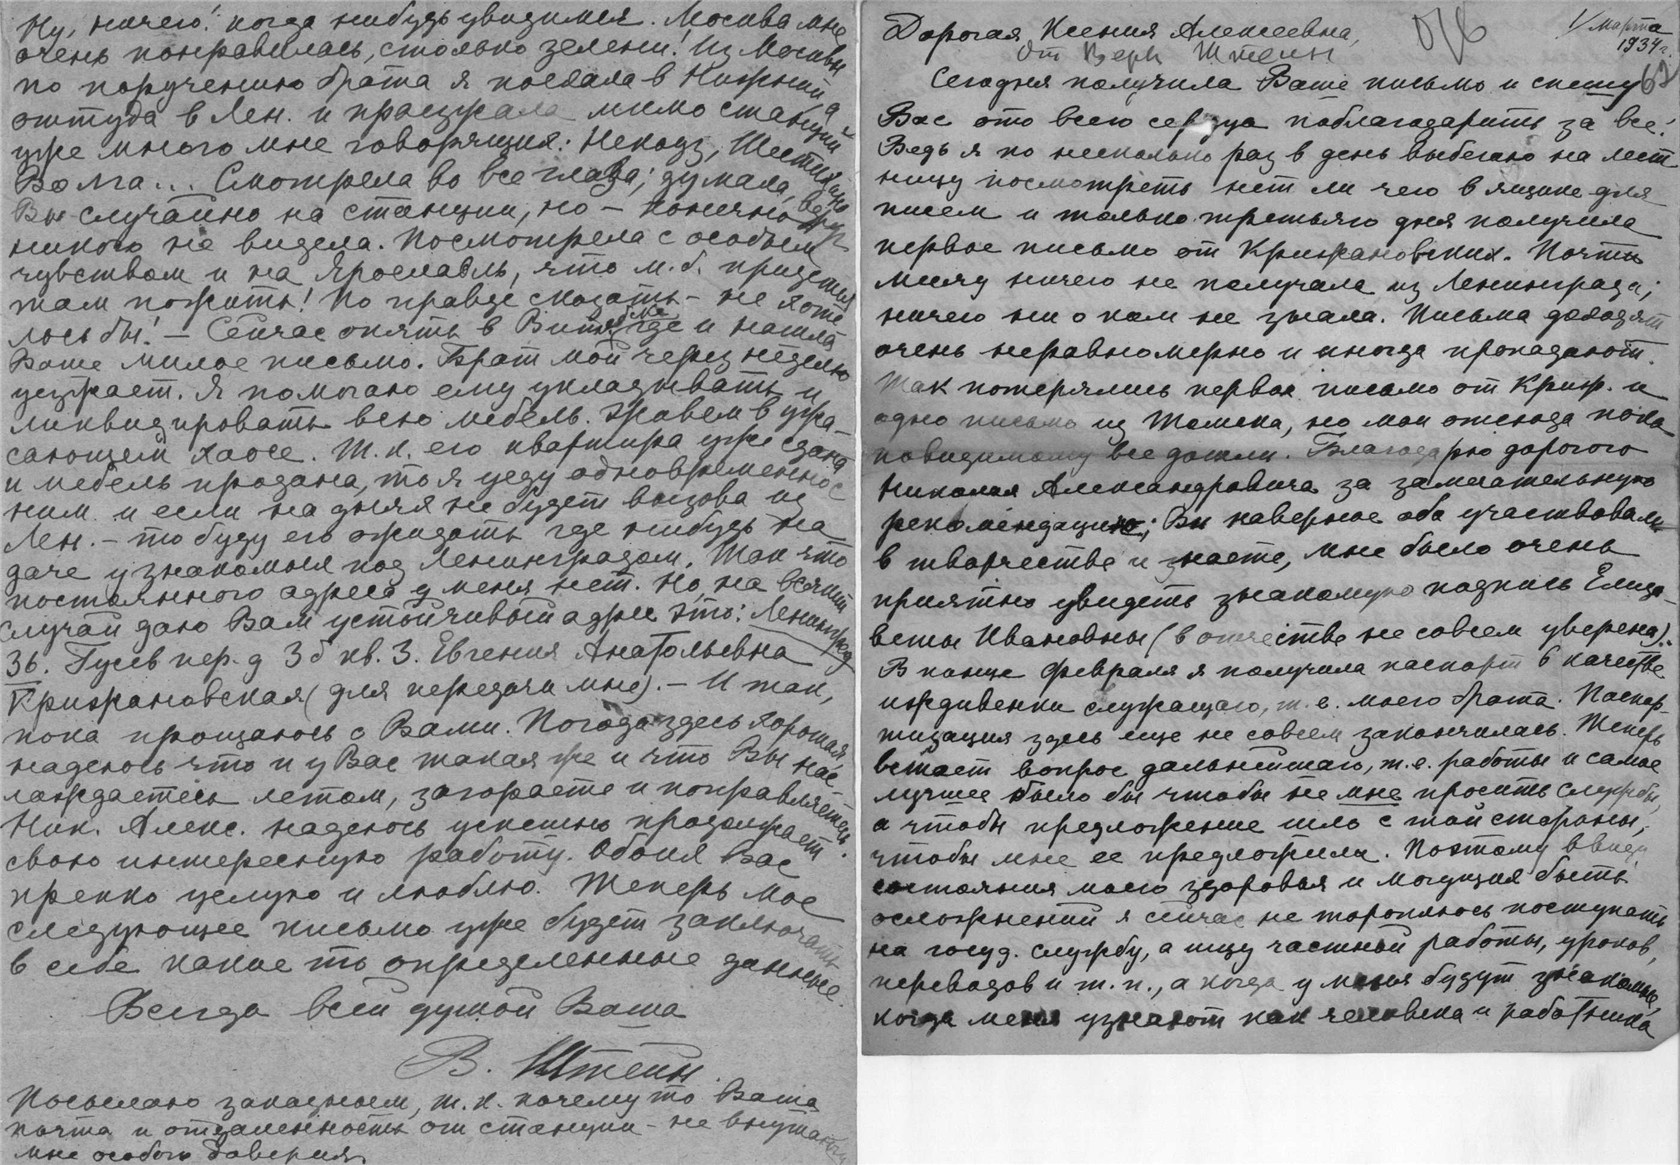 Ну, ничего! когда нибудь увидимся. Москва мне
очень понравилась, столько зелени! Из Москвы
по поручению брата я поехала в Нижний, а
оттуда в Лен. и проезжала мимо станций
уже много мне говорящих: Некоуз, Шестихино
Волга... Смотрела во все глаза; думала, вдруг
Вы случайно на станции, но – конечно
никого не видела. Посмотрела с особым
чувством и на Ярославль, что м.б. придется
там пожить! По правде сказать – не хоте
лось бы! – Сейчас опять в где и нашла
Ваше милое письмо. Брат мой через неделю
уезжает. Я помогаю ему укладывать и
ликвидировать всю мебель. Живем в ужа-
сающем хаосе. Т.к. его квартира уже сдана
и мебель продана, то я уеду одновременно с
ним и если на днях не будет вызова из
Лен. – то буду его ожидать где нибудь на
даче у знакомых под Ленинградом. Так что
постоянного адреса у меня нет. Но на всякий
случай даю Вам устойчивый адрес это: Ленинград
36. Гусев пер. д 3б кв. 3. Евгения Анатольевна
Крижановская (для передачи мне). – И так,
пока прощаюсь с Вами. Погода здесь хорошая,
надеюсь что и у Вас такая же и что Вы нас-
лаждаетесь летом, загораете и поправляетесь.
Ник. Алекс. надеюсь успешно продолжает
свою интересную работу. Обоих Вас
крепко целую и люблю. Теперь мое
следующее письмо уже будет заключать
в себе какие то определенные данные.
Всегда всей душой Ваша
В. Штейн.
Посылаю заказным, т.к. почему то Ваша
почта и отдаленность от станции – не внушают
мне особого доверия.
Дорогая Ксения Алексеевна,
1/ марта
1934 г.
от Веры Штейн
Сегодня получила Ваше письмо и спешу
Вас ото всего сердца поблагодарить за все!
Ведь я по несколько раз в день выбегаю на лест
ницу посмотреть нет ли чего в ящике для
писем и только третьяго дня получила
первое письмо от Крижановских. Почти
месяц ничего не получала из Ленинграда;
ничего ни о ком не знала. Письма доходят
очень неравномерно и иногда пропадают.
Так потерялись первое письмо от Криж. и
одно письмо из Томска, но мои отсюда пока
повидимому все дошли. Благодарю дорогого
Николая Александровича за замечательную
рекомендацию; Вы наверное оба участвовали
в творчестве и знаете, мне было очень
приятно увидеть знакомую подпись Елиза-
веты Ивановны (в отчестве не совсем уверена).
В конце февраля я получила паспорт в качестве
иждивенки служащаго, т.е. моего брата. Паспор-
тизация здесь еще не совсем закончилась. Теперь
встает вопрос дальнейшаго, т.е. работы и самое
лучшее было бы чтобы не мне просить службы,
а чтобы предложение шло с той стороны,
чтобы мне ее предложили. Поэтому ввиду
состояния моего здоровья и могущих быть
осложнений я сейчас не тороплюсь поступать
на госуд. службу, а ищу частной работы, уроков,
переводов и т.п., а когда у меня будут знакомые,
когда меня узнают как человека и работника